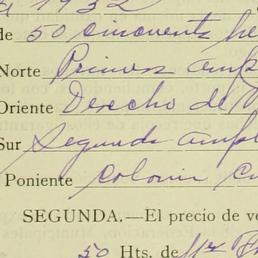 1932
de 50 cincuenta he
Norte Primera amp
Oriente Derecho de
Sur Segunda ampl
Poniente Colonia
SEGUNDA.—El precio de ve
50 Hts. de